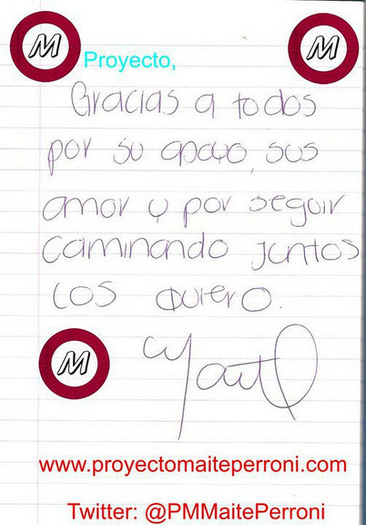 M
M
Proyecto,
Gracias a todos
por su apoyo, sus
amor y por seguir
caminando juntos
Los quiero.
M
Maite
www.proyectomaiteperroni.com
Twitter: @PMMaitePerroni